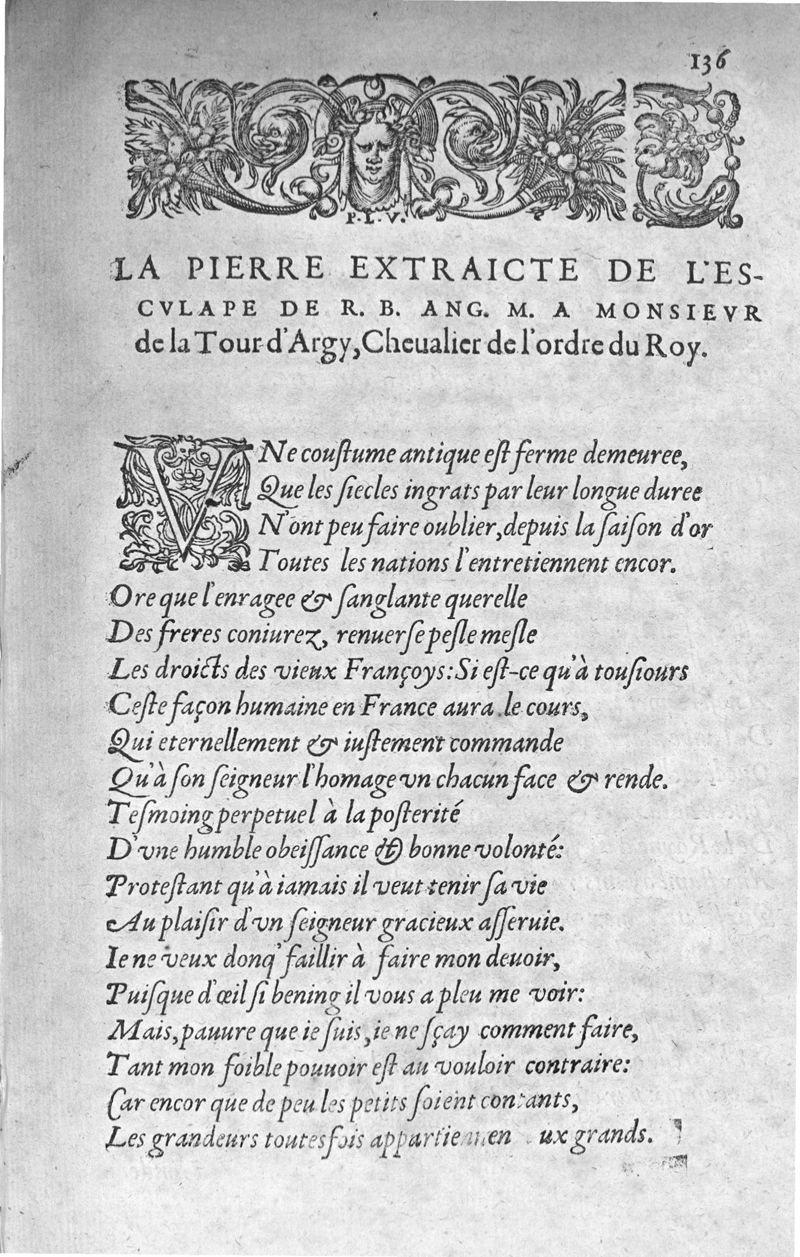 136
P. L. V.
LA PIERRE EXTRAICTE DE L'ES-
CVLAPE DE R. B. ANG. M. A MONSIEVR
de la Tour d'Argy, Cheualier de l'ordre du Roy.
VNe couſtume antique eſt ferme demeuree,
Que les ſiecles ingrats par leur longue duree
N'ont peu faire oublier, depuis la ſaiſon d'or
Toutes les nations l'entretiennent encor.
Ore que l'enragee & ſanglante querelle
Des freres coniurez, renuerſe peſle meſle
Les droicts des vieux Françoys: Si eſt-ce qu'à touſiours
Ceſte façon humaine en France aura le cours,
Qui eternellement & iuſtement commande
Qu'à ſon ſeigneur l'homage vn chacun face & rende.
Teſmoing perpetuel à la poſterité
D'vne humble obeiſſance & bonne volonté:
Proteſtant qu'à iamais il veut tenir ſa vie
Au plaiſir d'vn ſeigneur gracieux aſſeruie.
Ie ne veux donq' faillir à faire mon deuoir,
Puiſque d'œil ſi bening il vous a pleu me voir:
Mais, pauure que ie ſuis, ie ne ſçay comment faire,
Tant mon foible pouuoir eſt au vouloir contraire:
Car encor que de peu les petits ſoient contants,
Les grandeurs toutesfois appartiennen ux grands.